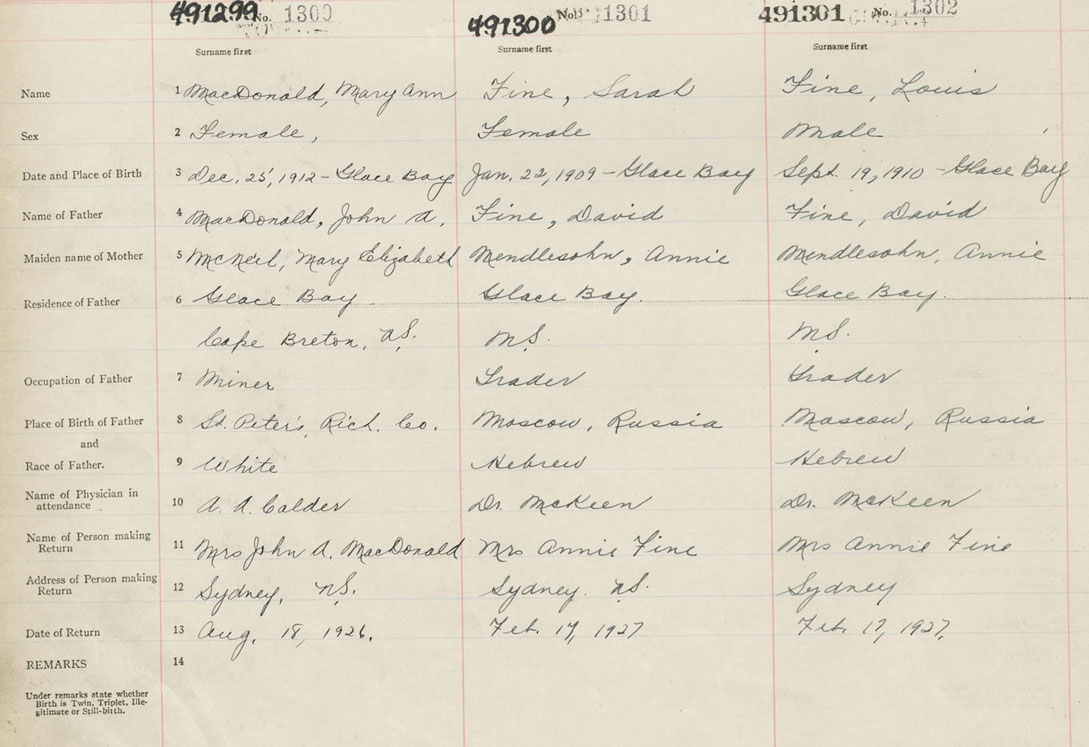 491299 No. 1300 491300 No. 1301 491301 No. 1302
Surname first Surname first Surname first
Name 1 MacDonald, Mary Ann Fine, Sarah Fine, Louis
Sex 2 Female, Female Male
Date and Place of Birth 3 Dec. 25, 1912 - Glace Bay Jan. 22, 1909 - Glace Bay Sept. 19, 1910 - Glace Bay
Name of Father 4 MacDonald, John A. Fine, David Fine, David
Maiden name of Mother 5 McNeil, Mary Elizabeth Mendlesohn, Annie Mendlesohn, Annie
Residence of Father 6 Glace Bay Glace Bay. Glace Bay.
Cape Breton, N.S. N.S. N.S.
Occupation of Father 7 Miner Trader Trader
Place of Birth of Father 8 St. Peter's, Rich. Co. Moscow, Russia Moscow, Russia
and
Race of Father. 9 White Hebrew Hebrew
Name of Physician in
attendance 10 A. A. Calder Dr. McKeen Dr. McKeen
Name of Person making
Return 11 Mrs John A. MacDonald Mrs Annie Fine Mrs Annie Fine
Address of Person making
Return 12 Sydney, N.S. Sydney. N.S. Sydney
Date of Return 13 Aug. 18, 1926. Feb. 17, 1927 Feb. 17, 1927.
REMARKS 14
Under remarks state whether
Birth is Twin, Triplet, Ille-
gitimate or Still-birth.